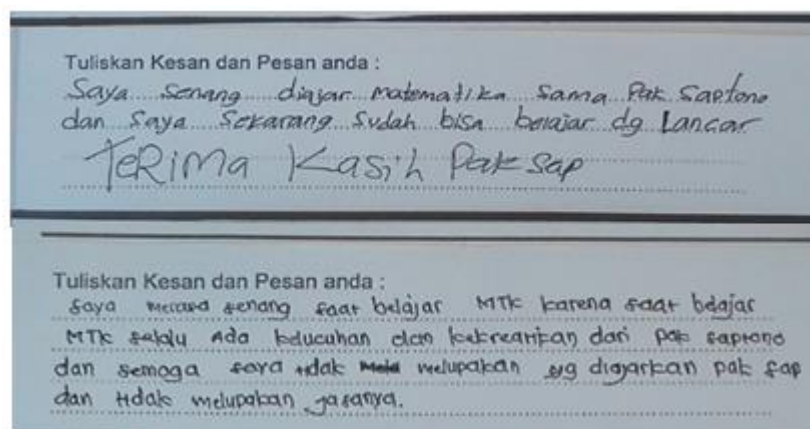 Tuliskan Kesan dan Pesan anda :
Saya senang diajar matematika sama Pak Saptono
dan saya sekarang sudah bisa belajar dg Lancar
TeRiMa Kasih Pak Sap
Tuliskan Kesan dan Pesan anda :
saya merasa senang saat belajar MTK karena saat belajar
MTK selalu Ada kelucuhan dan kekreatifan dari pak saptono
dan semoga saya tidak melupakan yg diajarkan pak sap
dan tidak melupakan jasanya.